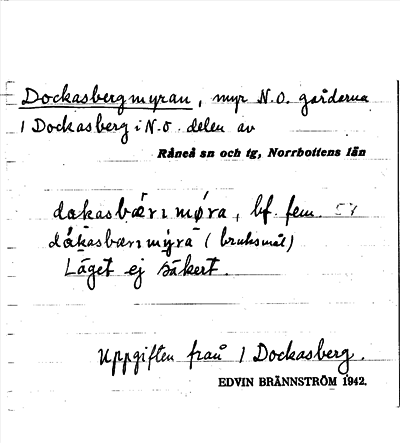 Dockasbergmyran, myr N.O. gårdarna
1 Dockasberg i N.O. delen av
Råneå sn och tg, Norrbottens län
dakasbærımøra, bf. fem.
dåkasbærımýra (bruksmål)
Läget ej säkert.
Uppgiften från 1 Dockasberg.
EDVIN BRÄNNSTRÖM 1942.